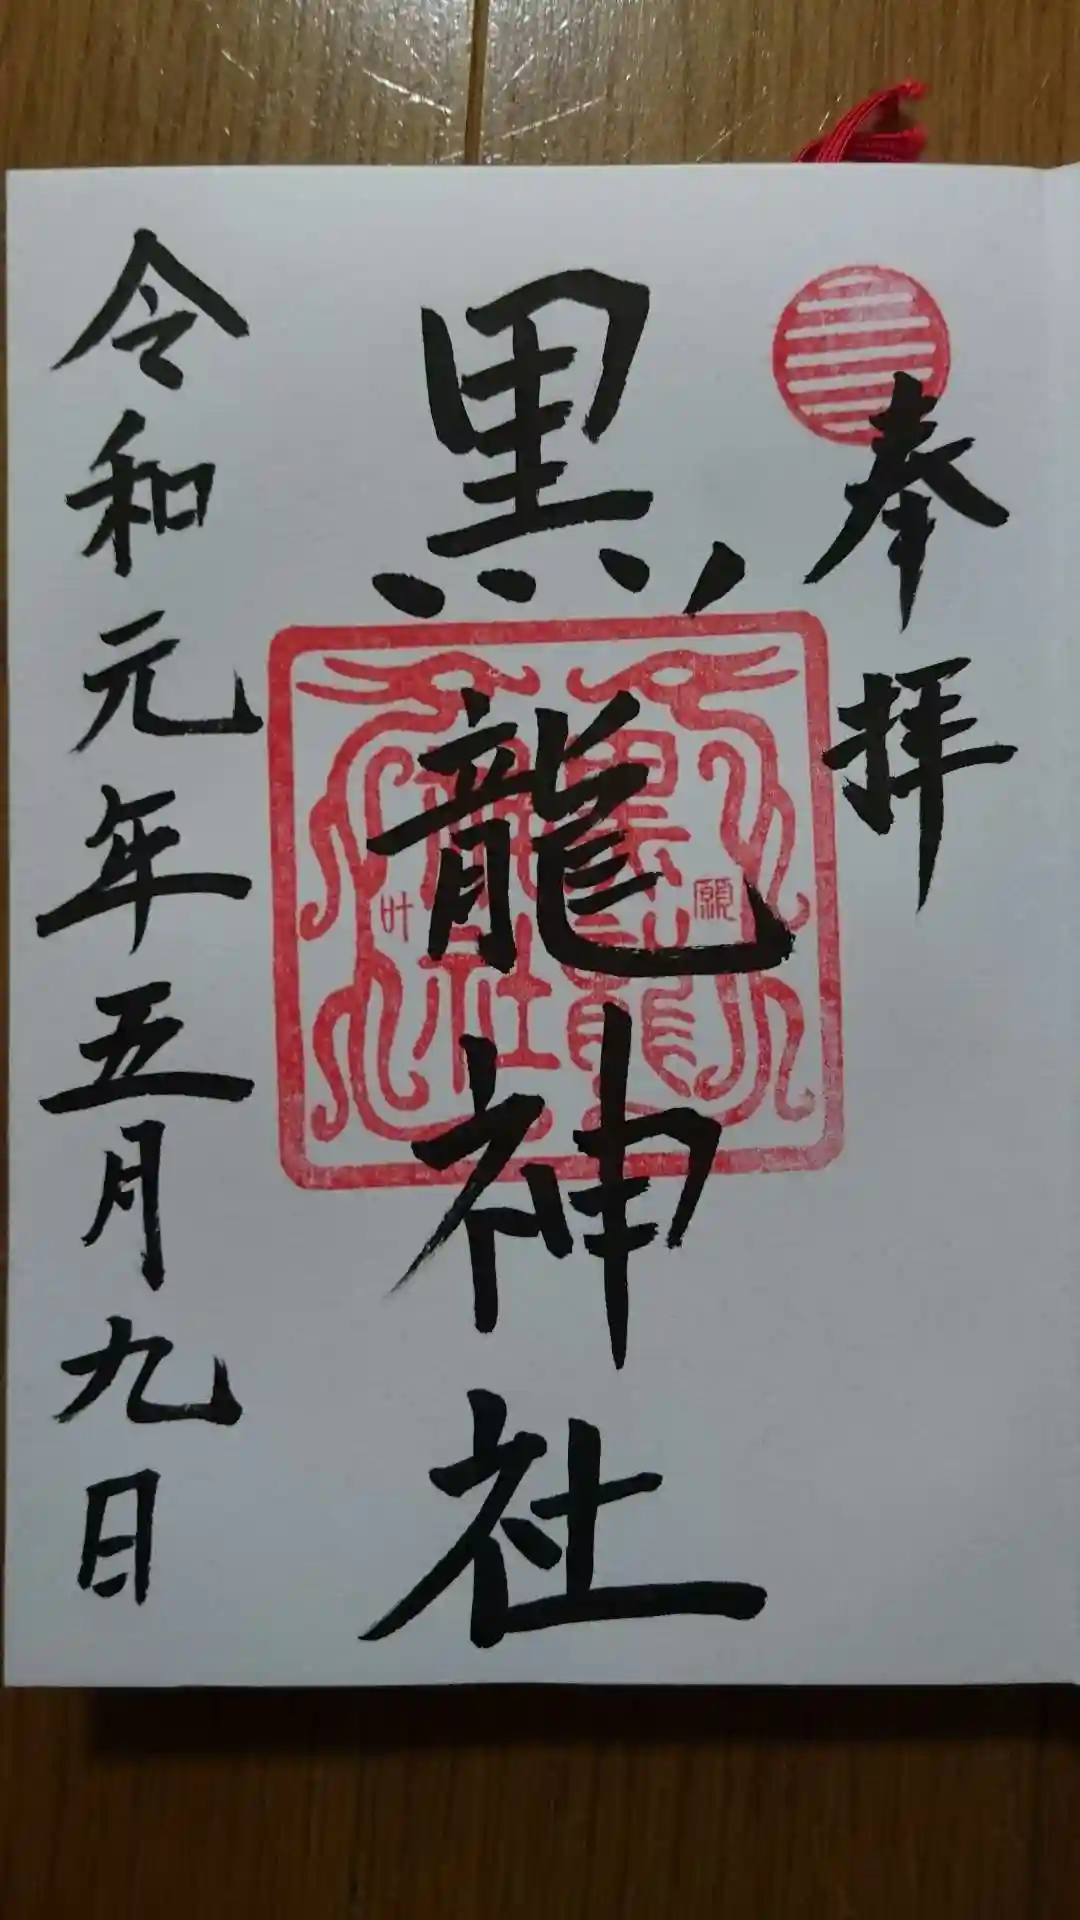 奉拝
黒龍神社
黒龍
神社
願
叶
令和元年五月九日